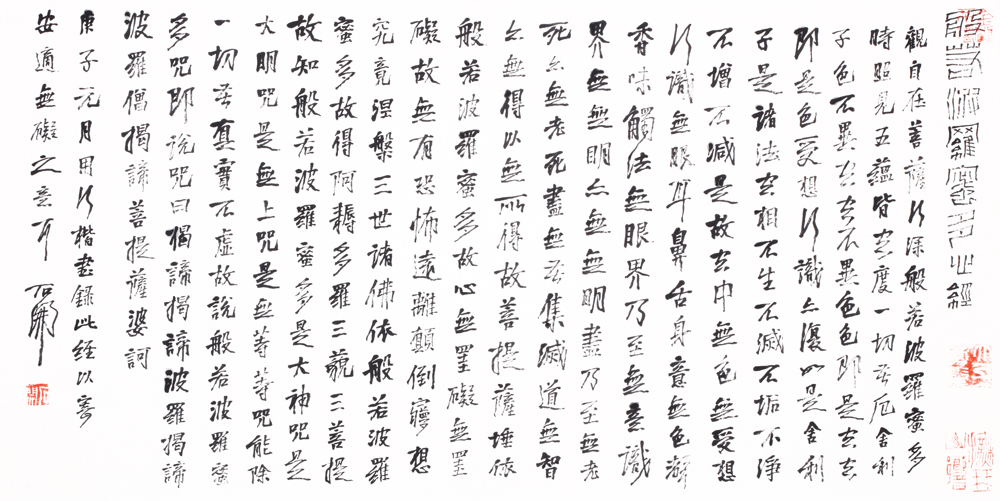 般若波羅蜜多心經
觀自在菩薩行深般若波羅蜜多
時照見五蘊皆空度一切苦厄舍利
子色不異空空不異色色即是空空
即是色受想行識亦復如是舍利
子是諸法空相不生不滅不垢不淨
不增不減是故空中無色無受想
行識無眼耳鼻舌身意無色聲
香味觸法無眼界乃至無意識
界無無明亦無無明盡乃至無老
死亦無老死盡無苦集滅道無智
亦無得以無所得故菩提薩埵依
般若波羅蜜多故心無罣礙無罣
礙故無有恐怖遠離顛倒夢想
究竟涅槃三世諸佛依般若波羅
蜜多故得阿耨多羅三藐三菩提
故知般若波羅蜜多是大神咒是
大明咒是無上咒是無等等咒能除
一切苦真實不虛故說般若波羅蜜
多咒即說咒曰揭諦揭諦波羅揭諦
波羅僧揭諦菩提薩婆訶
庚子元月用行楷書錄此經以寄
安適無礙之意耳